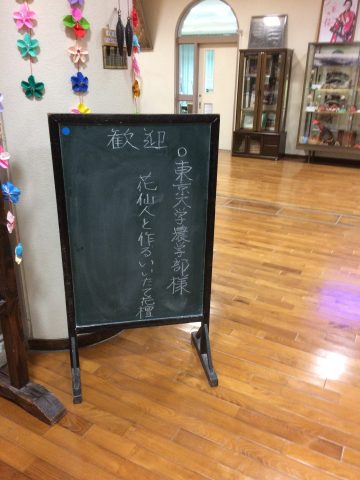 歓迎
○東京大学農学部様
花仙人と作るいいたて花壇